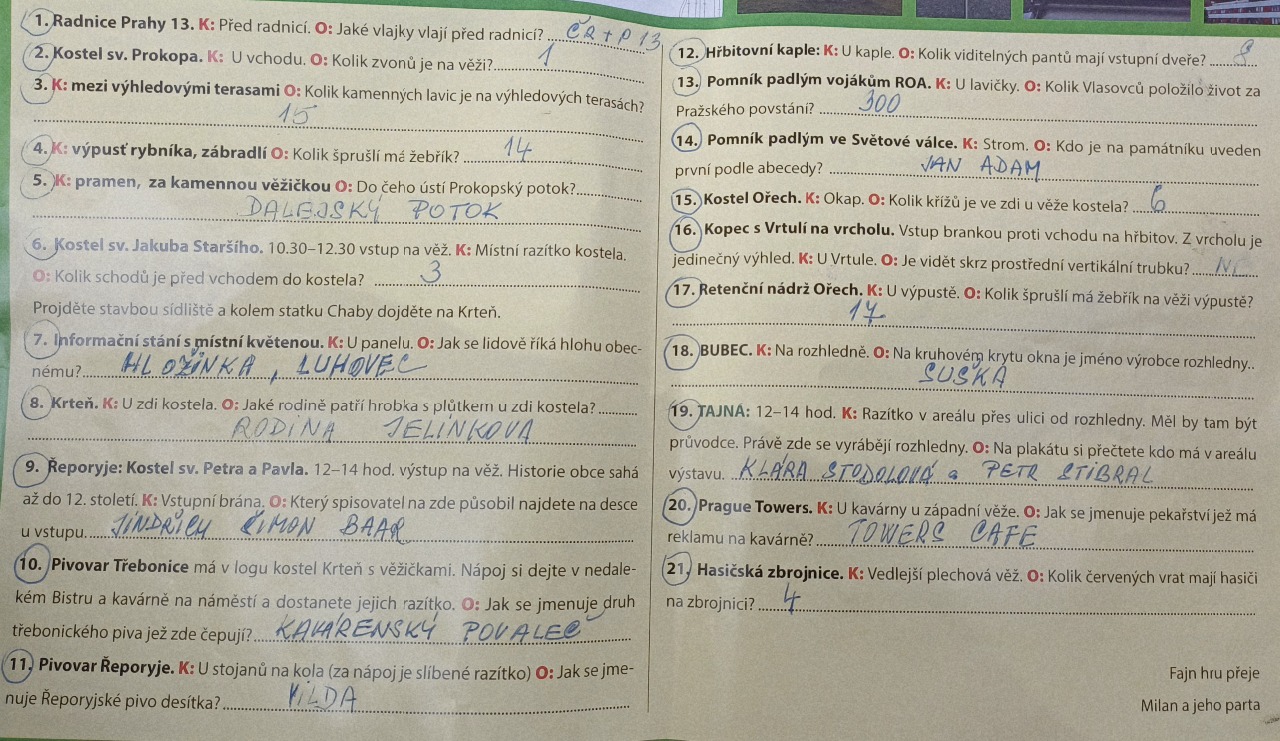 1. Radnice Prahy 13. K: Před radnicí. O: Jaké vlajky vlají před radnicí? ČR + P 13
2. Kostel sv. Prokopa. K: U vchodu. O: Kolik zvonů je na věži? 1
3. K: mezi výhledovými terasami O: Kolik kamenných lavic je na výhledových terasách?
15
4. K: výpusť rybníka, zábradlí O: Kolik šprušlí má žebřík? 14
5. K: pramen, za kamennou věžičkou O: Do čeho ústí Prokopský potok?
DALEJSKÝ POTOK
6. Kostel sv. Jakuba Staršího. 10.30–12.30 vstup na věž. K: Místní razítko kostela.
O: Kolik schodů je před vchodem do kostela? 3
Projděte stavbou sídliště a kolem statku Chaby dojděte na Krteň.
7. Informační stání s místní květenou. K: U panelu. O: Jak se lidově říká hlohu obec-
nému? HLOŽINKA, LUHOVEC
8. Krteň. K: U zdi kostela. O: Jaké rodině patří hrobka s plůtkem u zdi kostela?
RODINA JELÍNKOVA
9. Řeporyje: Kostel sv. Petra a Pavla. 12–14 hod. výstup na věž. Historie obce sahá
až do 12. století. K: Vstupní brána. O: Který spisovatel na zde působil najdete na desce
u vstupu. JINDŘICH ŠIMON BAAR
10. Pivovar Třebonice má v logu kostel Krteň s věžičkami. Nápoj si dejte v nedale-
kém Bistru a kavárně na náměstí a dostanete jejich razítko. O: Jak se jmenuje druh
třebonického piva jež zde čepují? KAVÁRENSKÝ POVALEČ
11. Pivovar Řeporyje. K: U stojanů na kola (za nápoj je slíbené razítko) O: Jak se jme-
nuje Řeporyjské pivo desítka? VILDA
12. Hřbitovní kaple: K: U kaple. O: Kolik viditelných pantů mají vstupní dveře? 8
13. Pomník padlým vojákům ROA. K: U lavičky. O: Kolik Vlasovců položilo život za
Pražského povstání? 300
14. Pomník padlým ve Světové válce. K: Strom. O: Kdo je na památníku uveden
první podle abecedy? JAN ADAM
15. Kostel Ořech. K: Okap. O: Kolik křížů je ve zdi u věže kostela? 6
16. Kopec s Vrtulí na vrcholu. Vstup brankou proti vchodu na hřbitov. Z vrcholu je
jedinečný výhled. K: U Vrtule. O: Je vidět skrz prostřední vertikální trubku? NE
17. Retenční nádrž Ořech. K: U výpustě. O: Kolik šprušlí má žebřík na věži výpustě?
17
18. BUBEC. K: Na rozhledně. O: Na kruhovém krytu okna je jméno výrobce rozhledny..
SUSKA
19. TAJNÁ: 12–14 hod. K: Razítko v areálu přes ulici od rozhledny. Měl by tam být
průvodce. Právě zde se vyrábějí rozhledny. O: Na plakátu si přečtete kdo má v areálu
výstavu. KLÁRA STODOLOVÁ a PETR STIBRAL
20. Prague Towers. K: U kavárny u západní věže. O: Jak se jmenuje pekařství jež má
reklamu na kavárně? TOWERS CAFE
21. Hasičská zbrojnice. K: Vedlejší plechová věž. O: Kolik červených vrat mají hasiči
na zbrojnici? 4
Fajn hru přeje
Milan a jeho parta